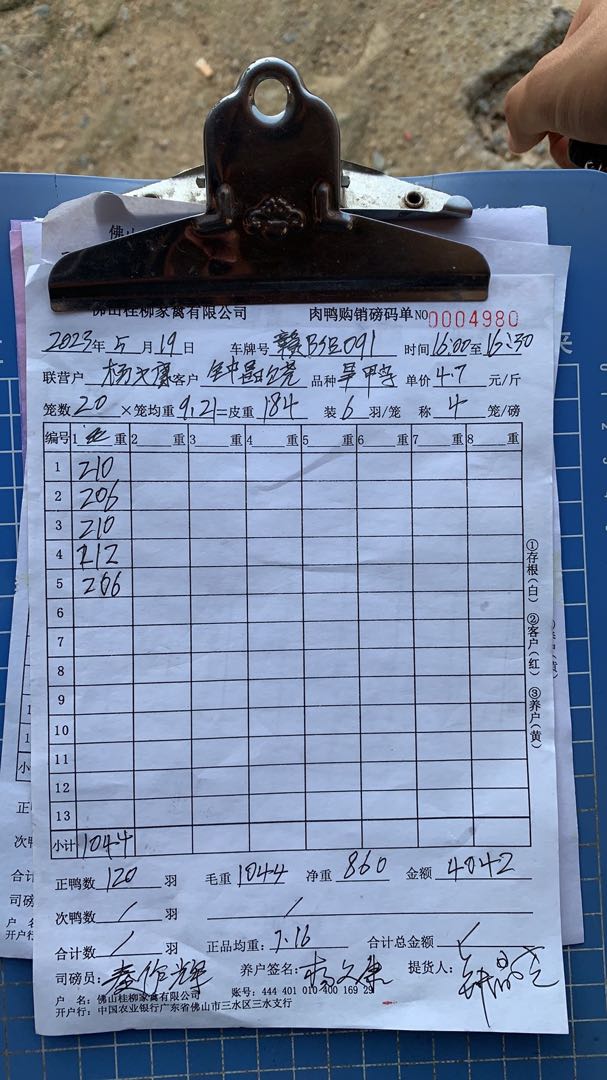 佛山桂柳家禽有限公司 肉鸭购销磅码单 NO 0004980
2023年 5月 19日 车牌号 时间 16:00 至 16:30
联营户 杨文康 客户 品种 单价 4.7 元/斤
笼数 20 ×笼均重 9.21 =皮重 184 装 6 羽/笼 称 4 笼/磅
编号 1 重 2 重 3 重 4 重 5 重 6 重 7 重 8 重
1 210
2 206
3 210
4 212
5 206
6
7
8
9
10
11
12
13
小计 1044
正鸭数 120 羽 毛重 1044 净重 860 金额 4042
次鸭数 / 羽 /
合计数 / 羽 正品均重: 7.16 合计总金额 /
司磅员: 秦作辉 养户签名: 杨文康 提货人:
户 名: 佛山桂柳家禽有限公司 账号: 444 401 010 400 169 29
开户行: 中国农业银行广东省佛山市三水区三水支行
①存根(白) ②客户(红) ③养户(黄)